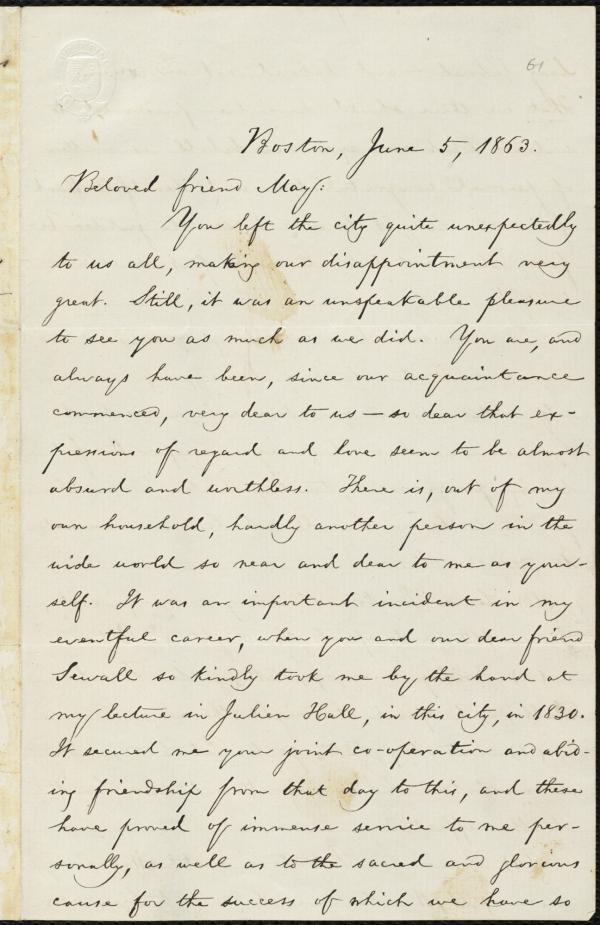 61
Boston, June 5, 1863.
Beloved friend May:
You left the city quite unexpectedly
to us all, making our disappointment very
great. Still, it was an unspeakable pleasure
to see you as much as we did. You are, and
always have been, since our acquaintance
commenced, very dear to us — so dear that ex-
pressions of regard and love seem to be almost
absurd and worthless. There is, out of my
own household, hardly another person in the
wide world so near and dear to me as your-
self. It was an important incident in my
eventful career, when you and our dear friend
Sewall so kindly took me by the hand at
my lecture in Julien Hall, in this city, in 1830.
It secured me your joint co-operation and abid-
ing friendship from that day to this, and these
have proved of immense service to me per-
sonally, as well as to the sacred and glorious
cause for the success of which we have so